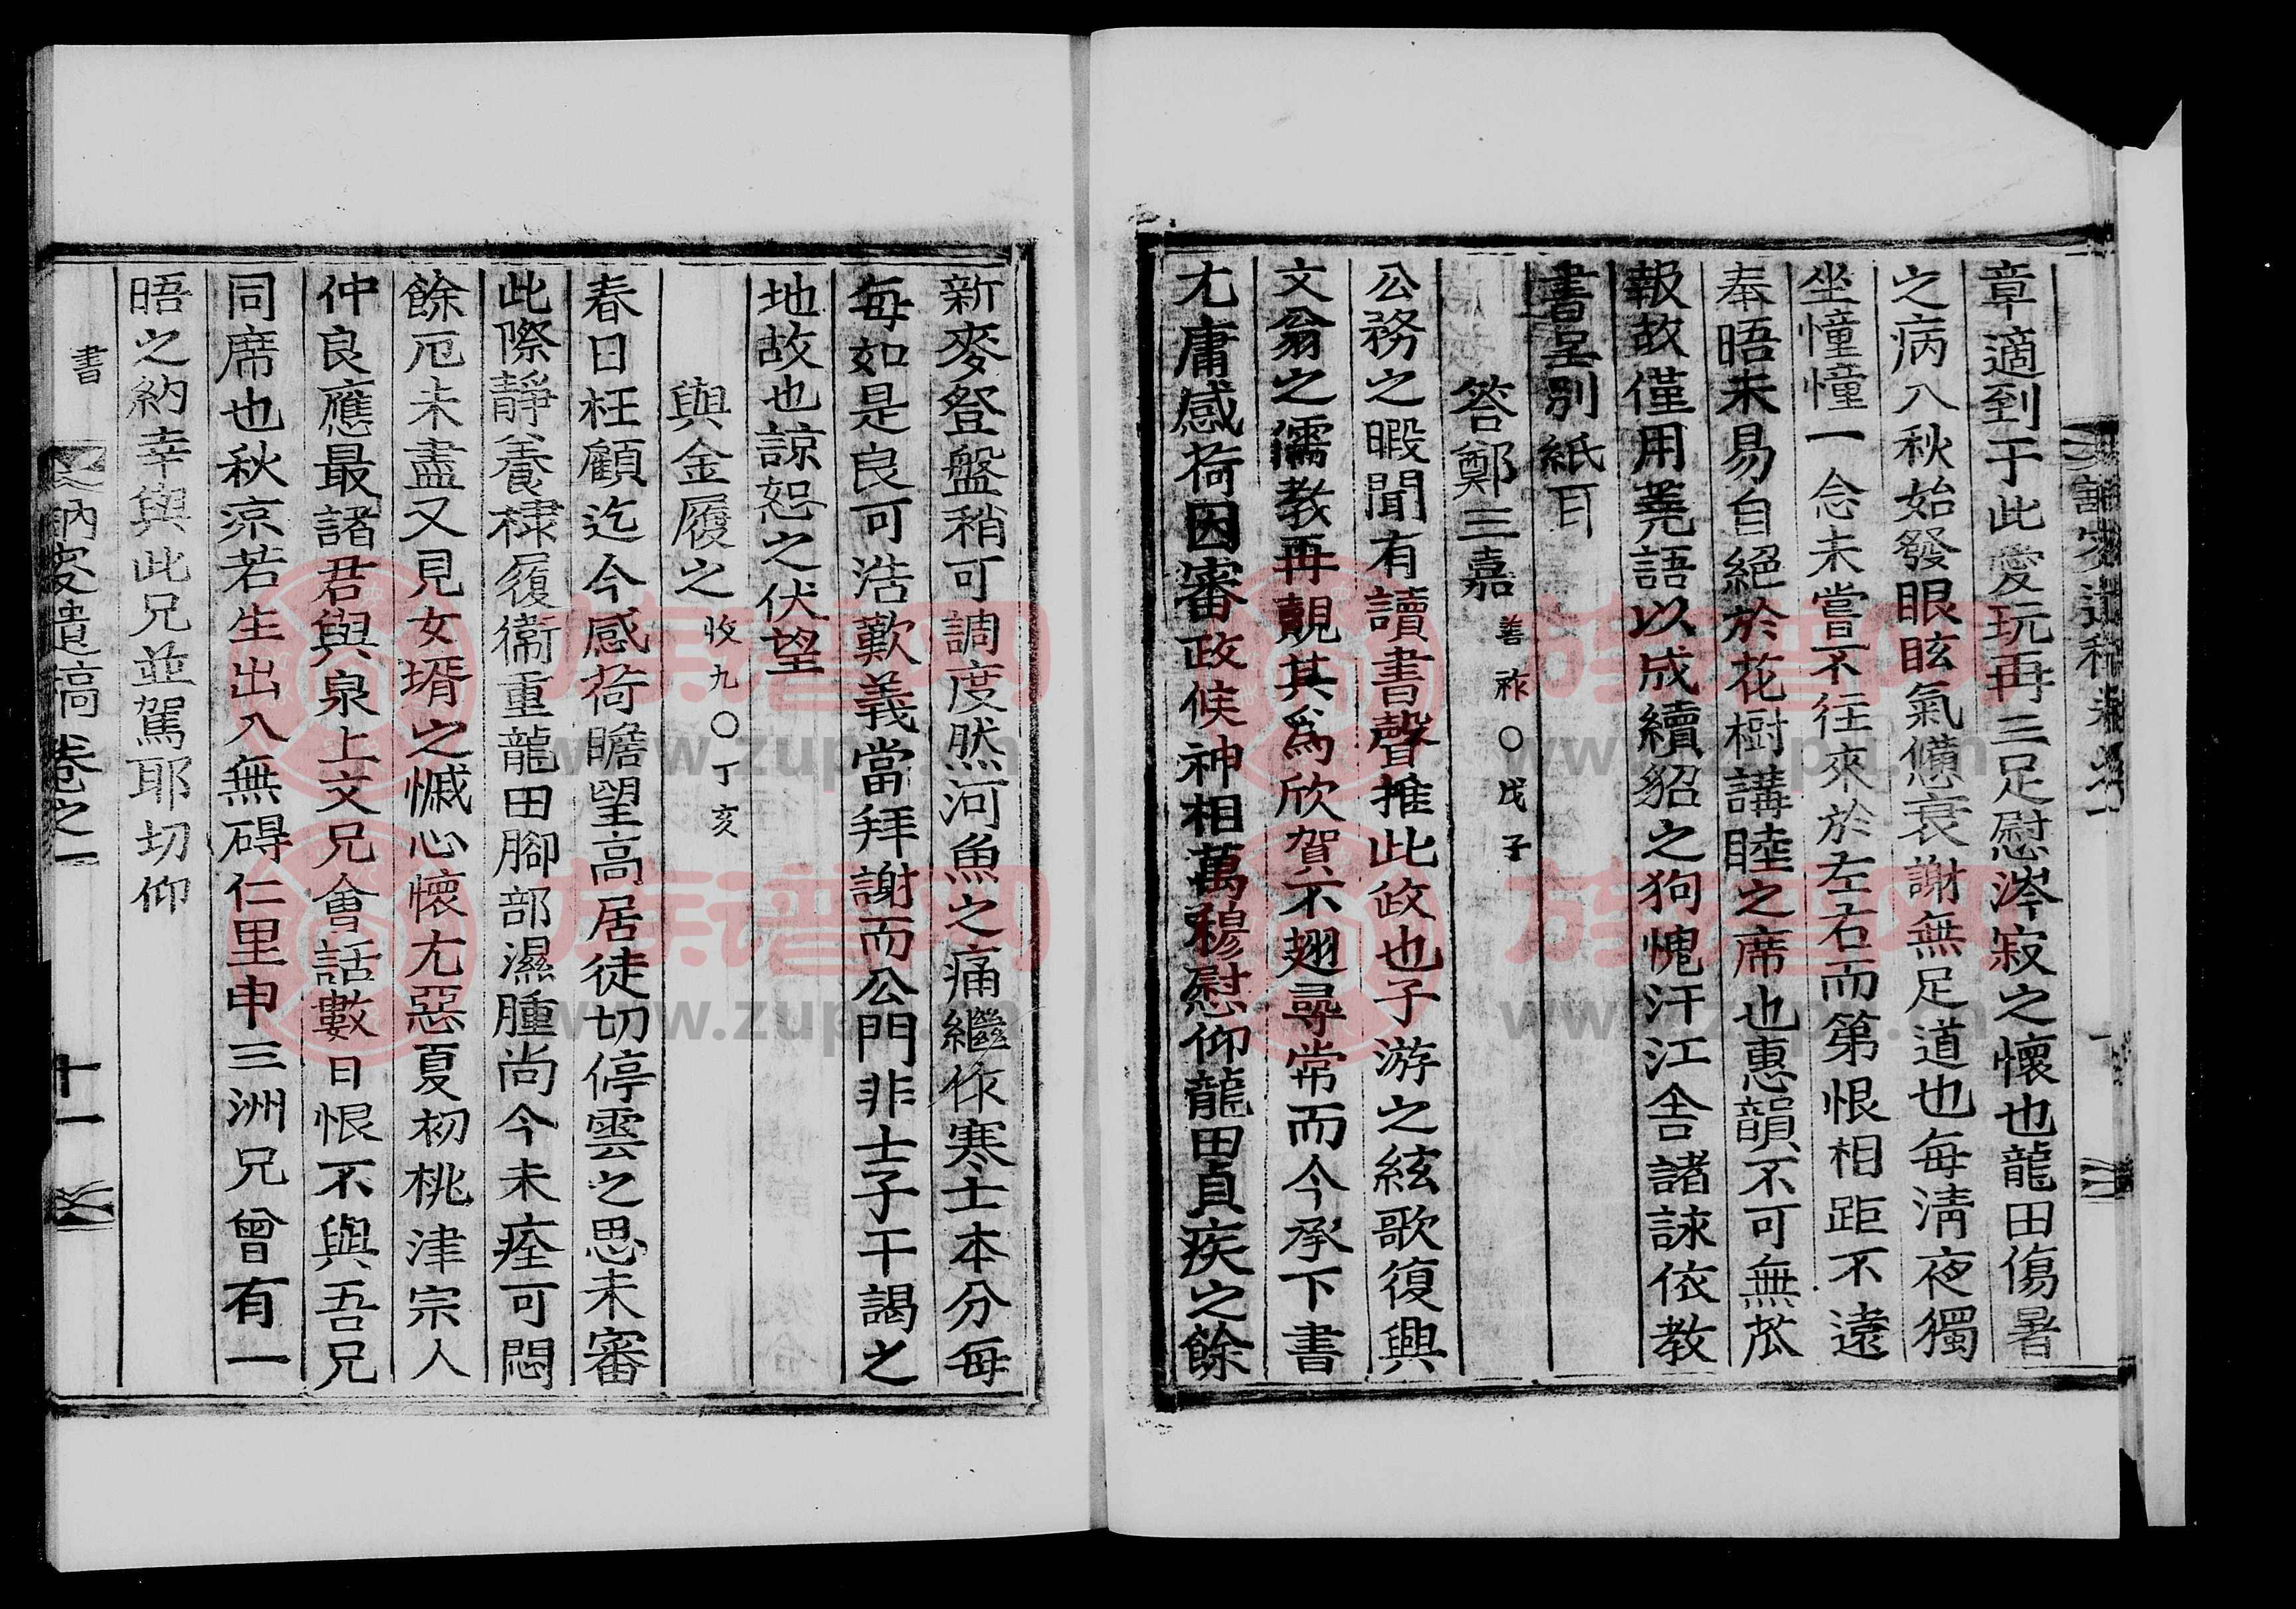 章適到于此愛玩再三足慰涔寂之懷也龍田傷暑
之病入秋始發眼眩氣憊衰謝無足道也每淸夜獨
坐憧憧一念未嘗不往來於左右而第恨相距不遠
奉晤未易自絕於花樹講睦之席也惠韻不可無苽
報故僅用蕘語以成續貂之狗愧汗江舍諸詠依敎
書呈別紙耳
答鄭三嘉 善祚○戊子
公務之暇聞有讀書聲推此政也子游之絃歌復興
文翁之儒敎再覩其爲欣賀不翅尋常而今承下書
尤庸感荷因審政候神相萬穆慰仰龍田貞疾之餘
新麥登盤稍可調度然河魚之痛繼作寒士本分每
每如是良可浩歎義當拜謝而公門非士子干謁之
地故也諒恕之伏望
與金履之 收九○丁亥
春日枉顧迄今感荷瞻望高居徒切停雲之思未審
此際靜養棣履衞重龍田脚部濕腫尚今未痊可悶
餘厄未盡又見女壻之慽心懷尤惡夏初桃津宗人
仲良應最諸君與泉上文兄會話數日恨不與吾兄
同席也秋凉若生出入無碍仁里申三洲兄曾有一
晤之約幸與此兄並駕耶切仰
書
訥窩遺稿卷之一
十一
www.zupu.cn
族谱网